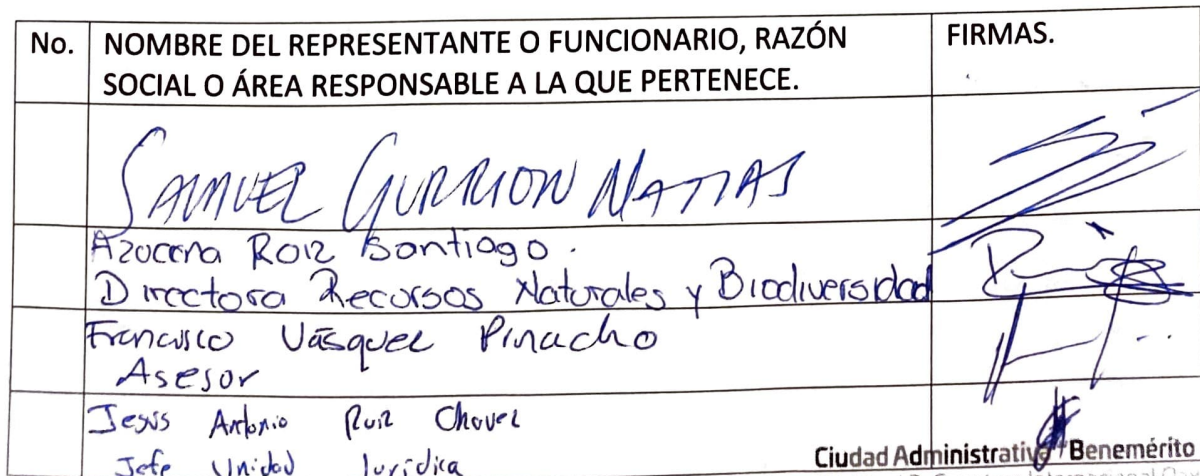 No. NOMBRE DEL REPRESENTANTE O FUNCIONARIO, RAZÓN SOCIAL O ÁREA RESPONSABLE A LA QUE PERTENECE. FIRMAS.
SAMUEL GURRION MATIAS
Azucena Ruiz Santiago.
Directora Recursos Naturales y Biodiversidad
Francisco Vásquez Pinacho
Asesor
Jesús Antonio Ruiz Chavez
Jefe Unidad Jurídica
Ciudad Administrativa "Benemérito